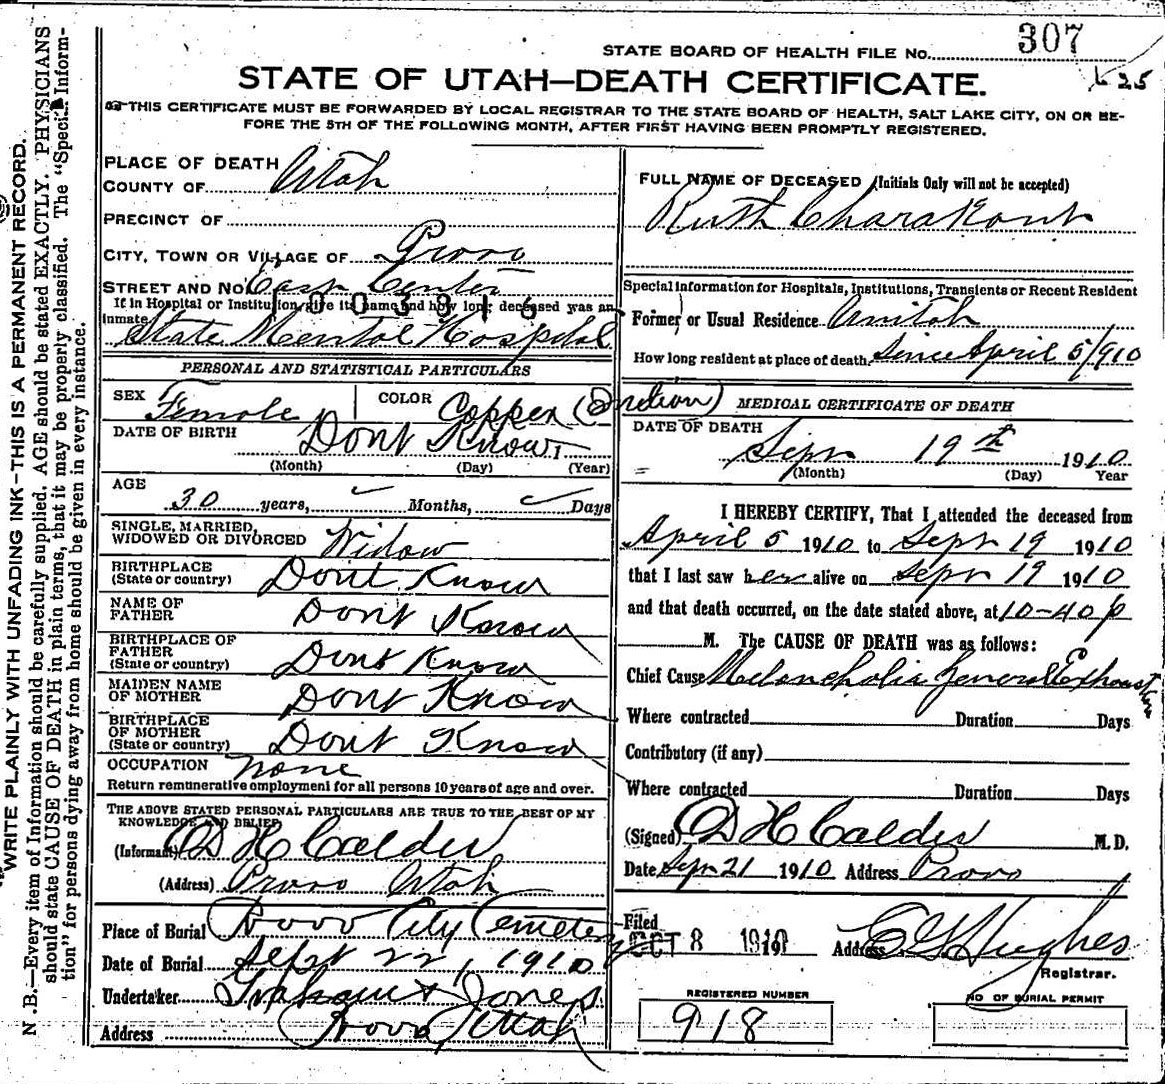 STATE BOARD OF HEALTH FILE No. 307
STATE OF UTAH—DEATH CERTIFICATE.
THIS CERTIFICATE MUST BE FORWARDED BY LOCAL REGISTRAR TO THE STATE BOARD OF HEALTH, SALT LAKE CITY, ON OR BE-
FORE THE 5TH OF THE FOLLOWING MONTH, AFTER FIRST HAVING BEEN PROMPTLY REGISTERED.
WRITE PLAINLY WITH UNFADING INK—THIS IS A PERMANENT RECORD.
N.B.—Every item of Information should be carefully supplied. AGE should be stated EXACTLY. PHYSICIANS
should state CAUSE OF DEATH in plain terms, that it may be properly classified. The "Special Inform-
tion" for persons dying away from home should be given in every instance.
PLACE OF DEATH
COUNTY OF Utah
PRECINCT OF
CITY, TOWN OR VILLAGE OF Provo
STREET AND No East Center
If in Hospital or Institution give its name and how long deceased was an
inmate State Mental Hospital
PERSONAL AND STATISTICAL PARTICULARS
SEX Female COLOR Copper (Indian)
DATE OF BIRTH Dont Know
(Month) (Day) (Year)
AGE 30 years, Months, Days
SINGLE, MARRIED,
WIDOWED OR DIVORCED Widow
BIRTHPLACE
(State or country) Dont Know
NAME OF
FATHER Dont Know
BIRTHPLACE OF
FATHER
(State or country) Dont Know
MAIDEN NAME
OF MOTHER Dont Know
BIRTHPLACE
OF MOTHER
(State or country) Dont Know
OCCUPATION None
Return remunerative employment for all persons 10 years of age and over.
THE ABOVE STATED PERSONAL PARTICULARS ARE TRUE TO THE BEST OF MY
KNOWLEDGE AND BELIEF
(Informant) D H Calder
(Address) Provo Utah
Place of Burial Provo City Cemetery
Date of Burial Sept 22, 1910
Undertaker Graham & Jones
Address Provo Utah
FULL NAME OF DECEASED (Initials Only will not be accepted)
Ruth
Special Information for Hospitals, Institutions, Transients or Recent Resident
Former or Usual Residence
How long resident at place of death Since April 5/910
MEDICAL CERTIFICATE OF DEATH
DATE OF DEATH
Sept 19th 1910
(Month) (Day) Year
I HEREBY CERTIFY, That I attended the deceased from
April 5 1910 to Sept 19 1910
that I last saw her alive on Sept 19 1910
and that death occurred, on the date stated above, at 10-40 p
M. The CAUSE OF DEATH was as follows:
Chief Cause Melancholia General Exhaustion
Where contracted Duration Days
Contributory (if any)
Where contracted Duration Days
(Signed) D H Calder M.D.
Date Sept 21 1910 Address Provo
Filed
OCT 8 1910 191 Address E G Hughes
Registrar.
REGISTERED NUMBER
918
NO OF BURIAL PERMIT